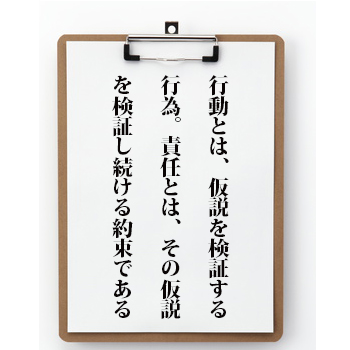 行動とは、仮説を検証する
行為。責任とは、その仮説
を検証し続ける約束である